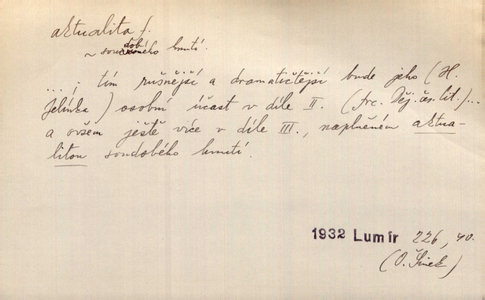 aktualita f.
~ soudobého hnutí.
... : tím rušnější a dramatičtější bude jeho (H.
Jelínka) osobní účast v díle II. (frc. Děj. čes. lit.)...
a ovšem ještě více v díle III., naplněném aktua-
litou soudobého hnutí.
1932 Lumír 226, 40.
(O. Šimek)